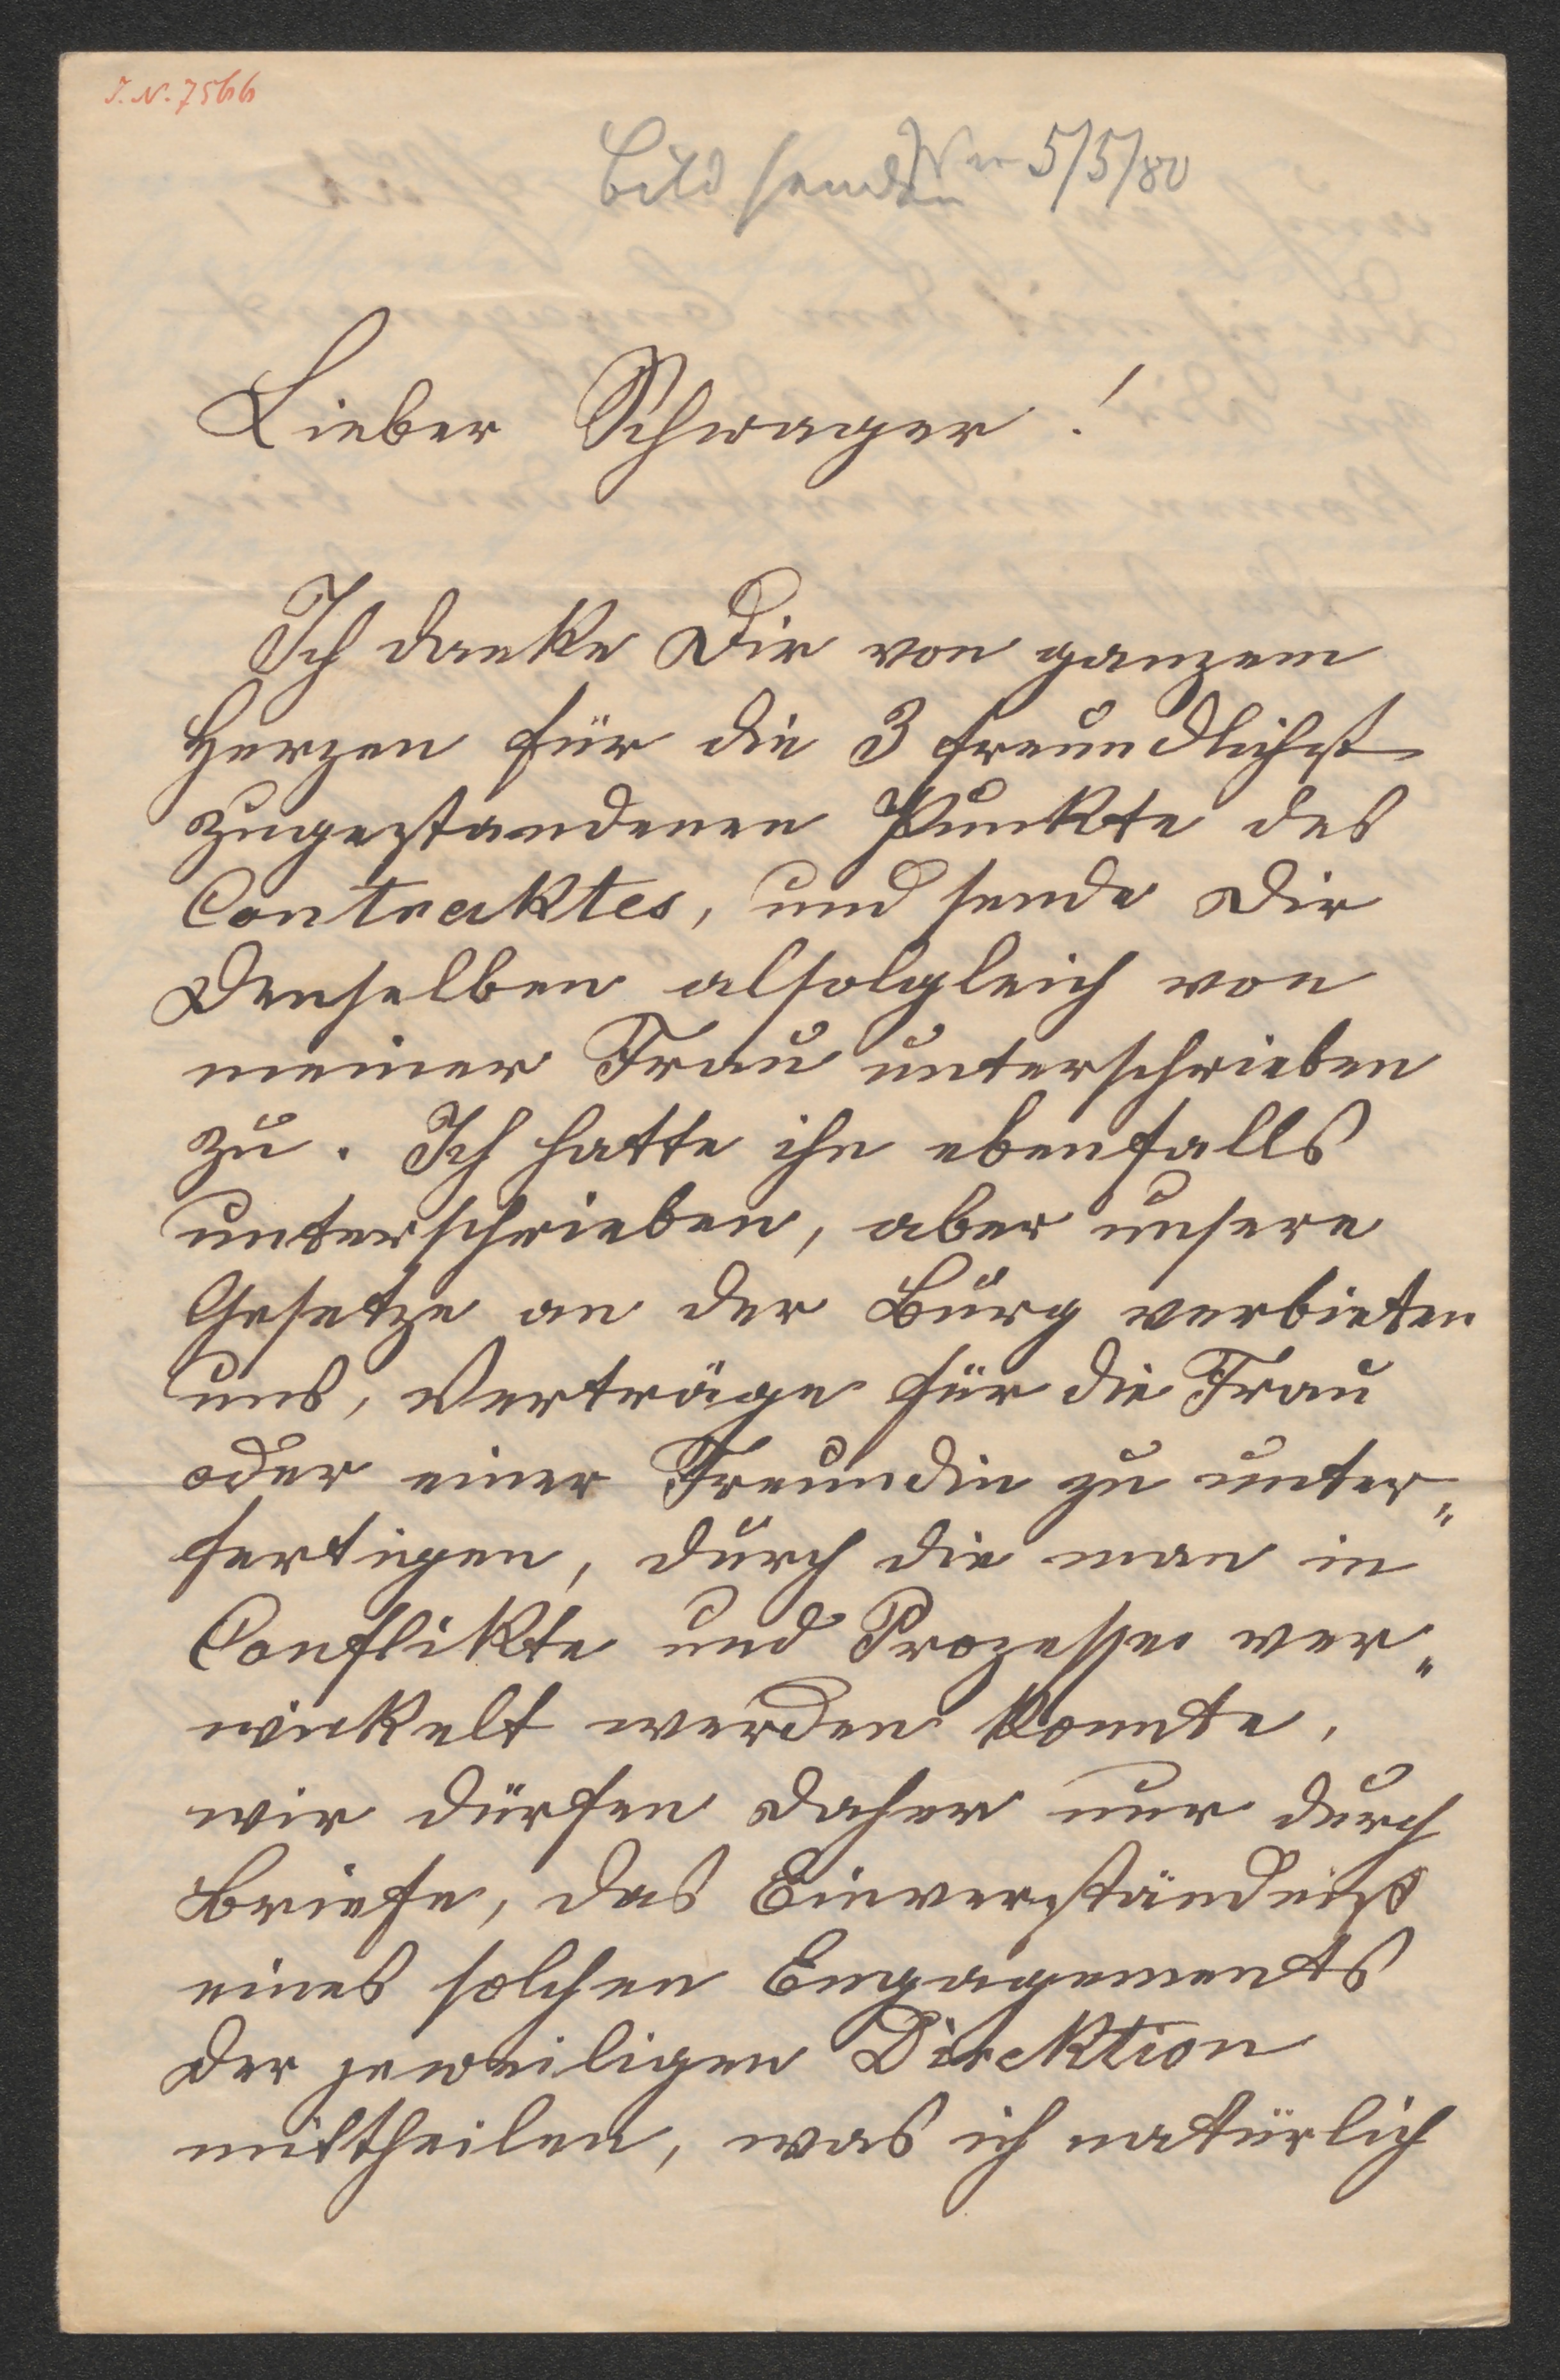 I. N. 7566
Bild senden Wn 5/5/80
Lieber Schwager!
Ich danke Dir von ganzem
Herzen für die 3 freundlichst
zugestandenen Punkte des
Contraktes, und sende Dir
Denselben alsolgleich von
meiner Frau unterschrieben
zu. Ich hatte ihn ebenfalls
unterschrieben, aber unsere
Gesetze an der Burg verbieten
uns, Verträge für die Frau
oder einer Freundin zu unter„
fertigen, durch die man in
Conflikte und Prozesse ver„
wickelt werden konnte,
wir dürfen daher nur durch
Briefe, das Einverständniß
eines solchen Engagements
der jeweiligen Direktion
mittheilen, was ich natürlich